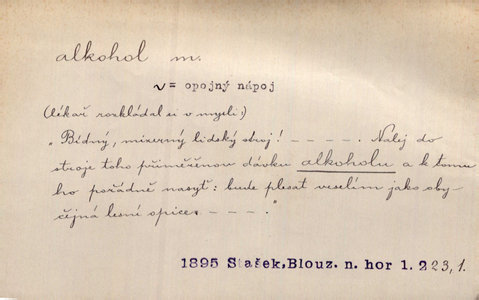 alkohol m.
~= opojný nápoj
(lékař rozkládal si v mysli:)
„Bídný, mizerný lidský stroj! – – – – –. Nalej do
stroje toho přiměřenou dávku alkoholu a k tomu
ho pořádně nasyť: bude plesat veselím jako oby-
čejná lesní opice. – – – –."
1895 Stašek,Blouz. n. hor 1. 223,1.